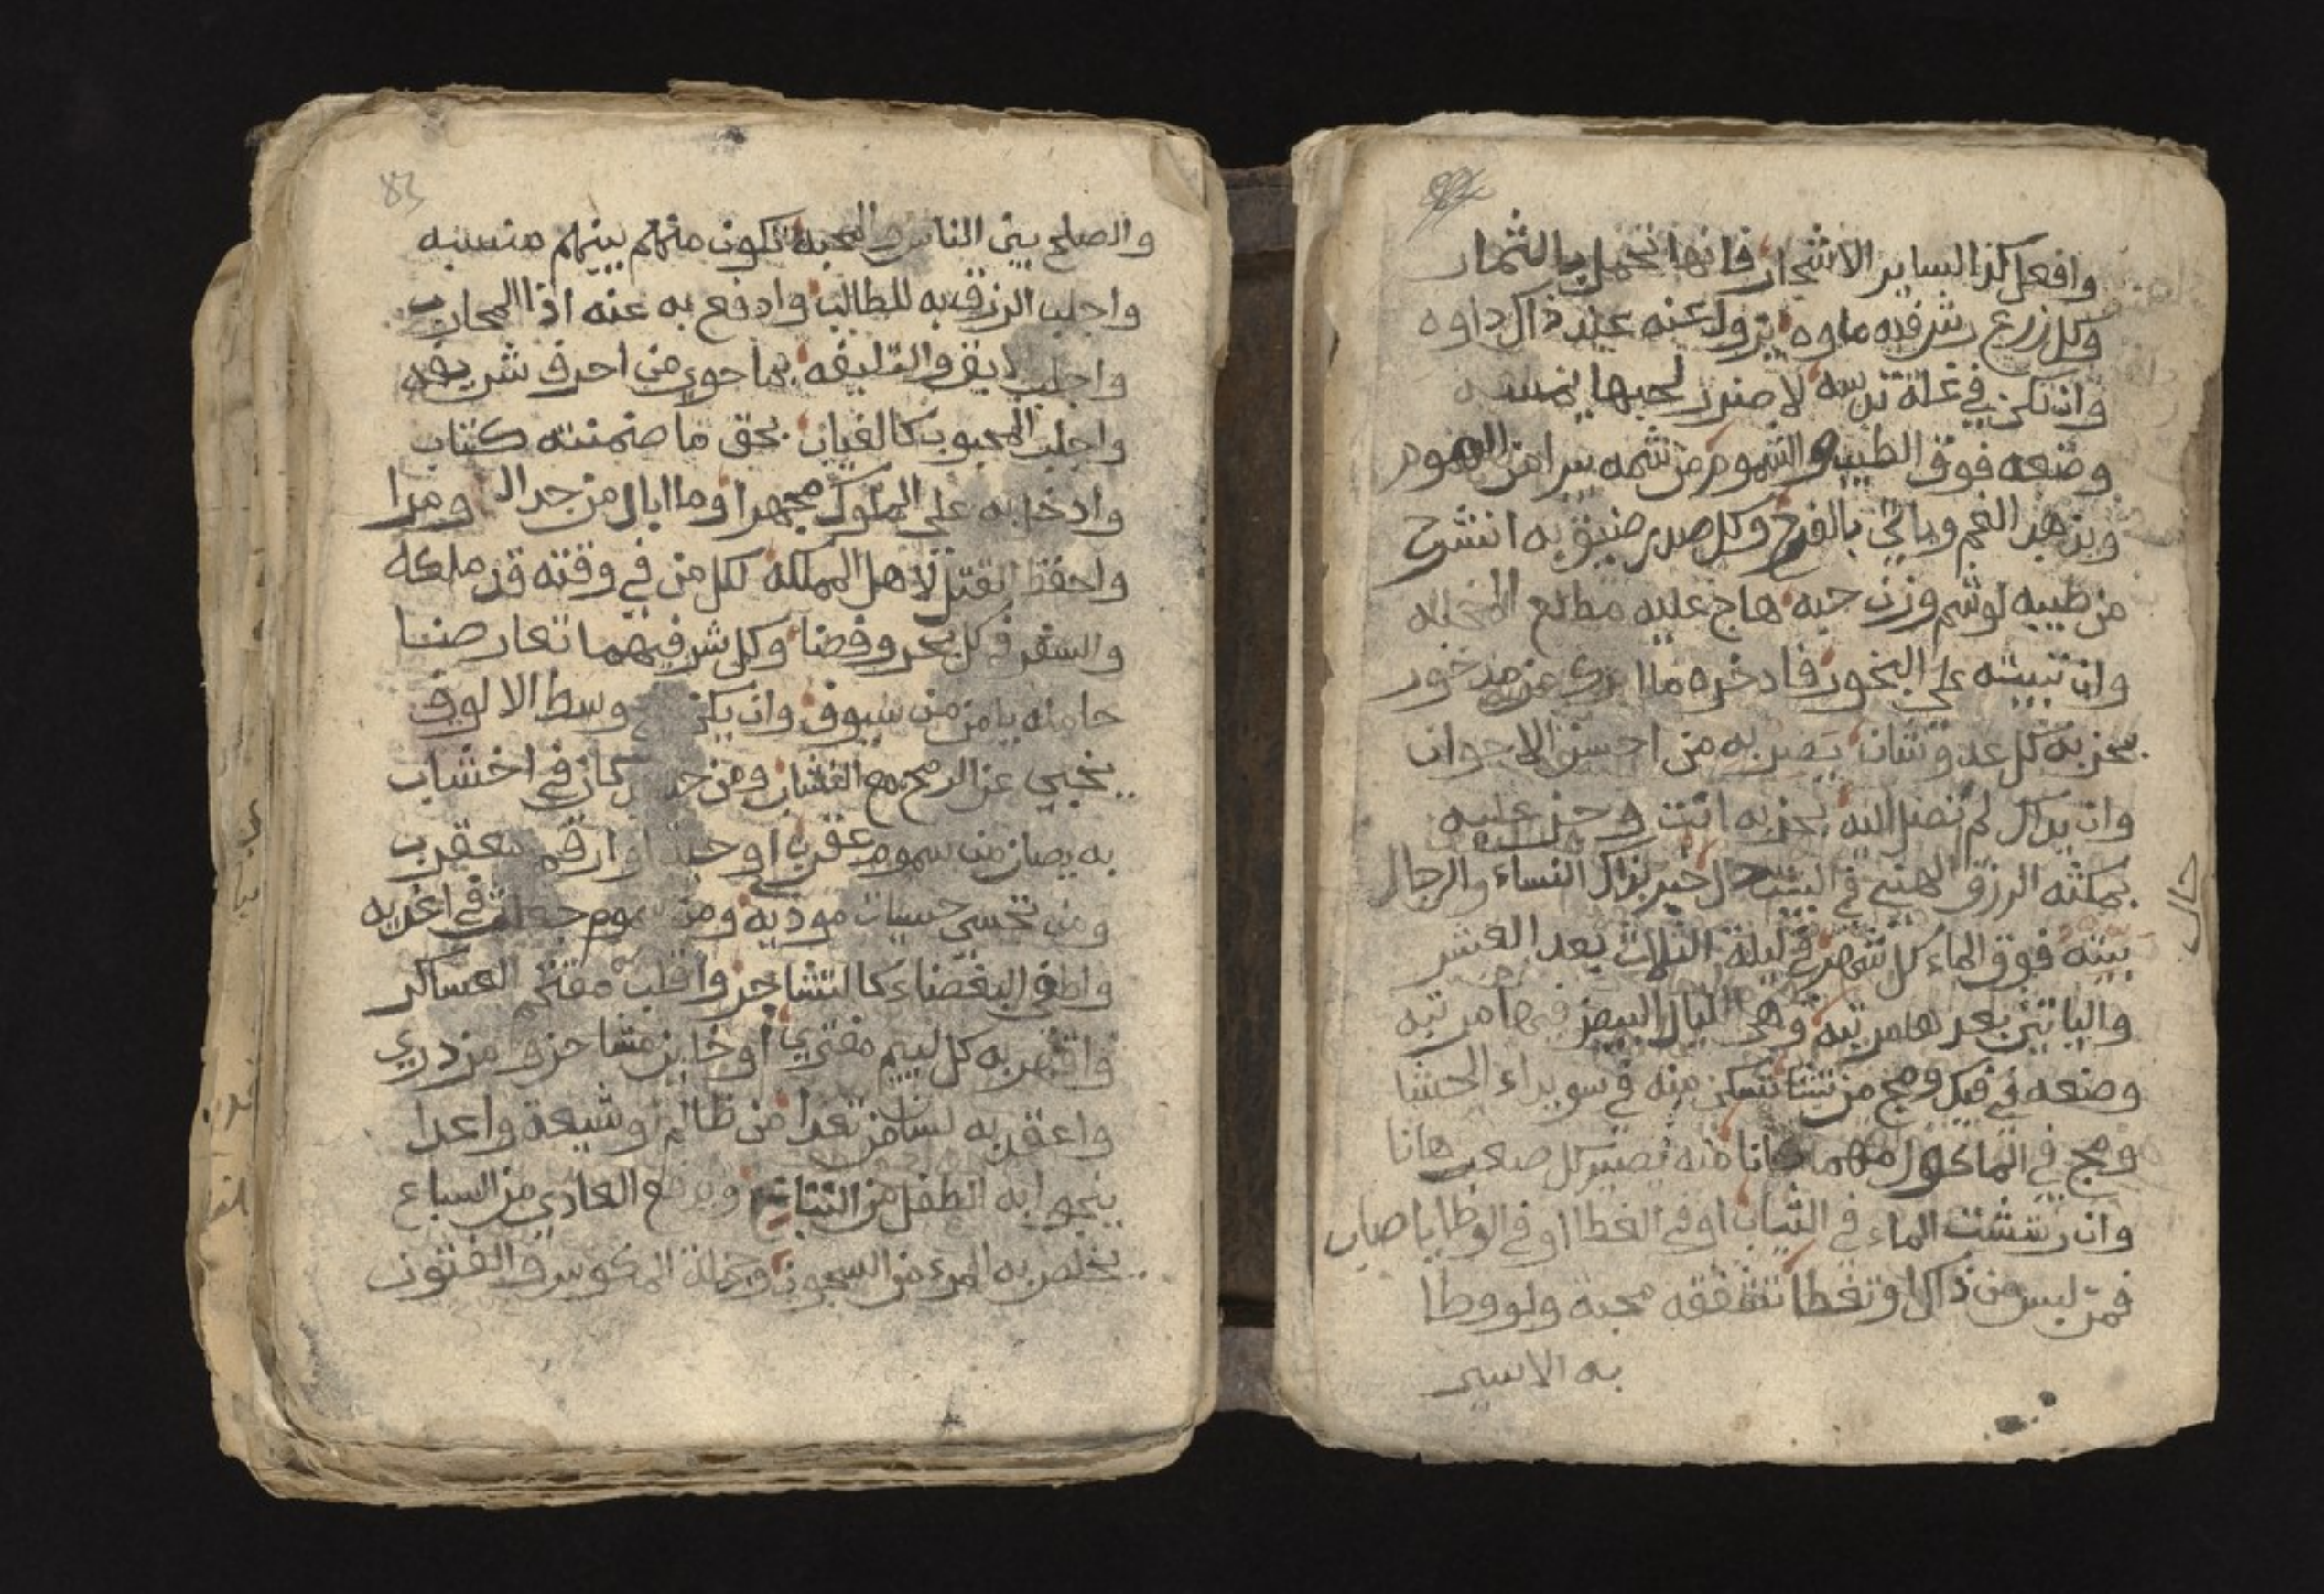 وافعل كذا لساير الاشجار فانها تحمل بالثمار
وكل زرع رش فيه ماوه يزول عنه عند ذاك داوه
وان تكن في غلة تدسه لا ضرر لحبها يمسه
وضعه فوق الطيب والشموم من شمه يبرا من الهموم
ويذهب الغم وياتي بالفرح وكل صدر ضيق به انشرح
من طيبه لو شم وزن حبه هاج عليه مطلع المحبه
وان تبيته على البخور فادخره
بخر به كل عد وشان تصير به من احسن الاخوان
وان يداك لم تصل اليه بخر به انت وجز عليه
يمكثه الرزق الهني في البيت خير بذاك النساء والرجال
حال
بيته فوق الماء كل شهر في ليلة الثلاث بعد العشر
والياتين بعدها مرتبه وهي اليال البيض فيها مرتبه
وضعه في فيك ومج من تشا تسكن منه في سويداء الحشا
ومج في الماكول مهما كانا منه يصير كل صعب هانا
وان رششت الماء في الثياب او في الغطا او في الوطا يا صاب
فمن لبس من ذاك او تغطا تشققه محبة ولو وطا
به الاسير
83
والصلح بين الناس والمحبه تكون منهم بينهم منسبه
واجلب الرزق به للطالب وادفع به عنه اذا المحارب
واجلب والتليفه بما حوى من احرف شريفه
واجلب المحبوب كالغياب بحق ما ضمنته كتاب
وادخل به على الملوك مجهرا وما ابال من جدال ومرا
واحفظ لاهل المملكه لكل من في وقته قد ملكه
والسفر في كل بحر وفضا وكل شر فيهما تعارضا
حامله يامن من سيوف وان يكن وسط الالوف
ينجي عن الرمح مع النشاب ومن كان في اخشاب
به يصان من سموم عقرب او حية او ارقم معقرب
ومن تخشى حسيات موذيه ومن سموم في اغذيه
واطفي البغضاء كالتشاجر واقلب العساكر
واقهر به كل ليم مفتري او خاين مشاحن ومزدري
واعقد به لسان من تعدا من ظالم او شيعة واعدا
ينجوا به الطفل من التتابع ويدفع العادي من السباع
يخلص به المرء من السجون وجملة المكوس والفتون